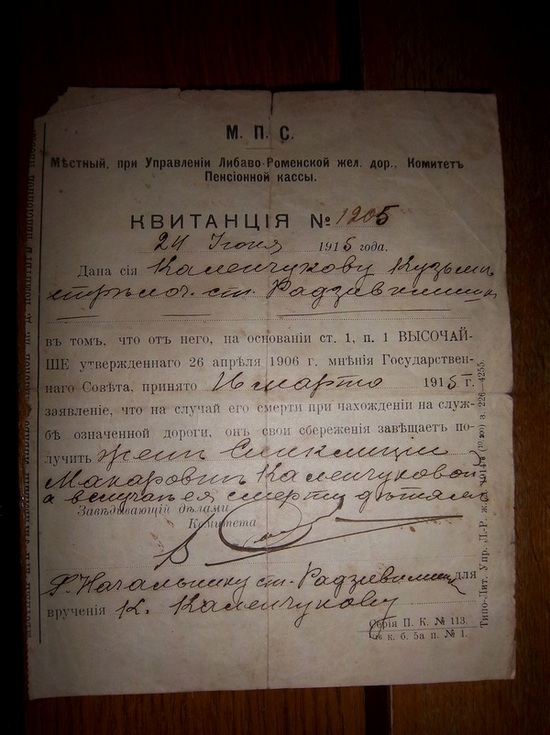 М. П. С.
Мѣстный, при Управленіи Либаво-Роменской жел. дор., Комитетъ
Пенсіонной кассы.
КВИТАНЦІЯ № 1205
24 Іюня 1915 года.
Дана сія Каленчукову Кузьмѣ
стрѣлоч. ст. Радзивилишки
въ томъ, что отъ него, на основаніи ст. 1, п. 1 ВЫСОЧАЙ-
ШЕ утвержденнаго 26 апрѣля 1906 г. мнѣнія Государствен-
наго Совѣта, принято 16 марта 1915 г.
заявленіе, что на случай его смерти при нахожденіи на служ-
бѣ означенной дороги, онъ свои сбереженія завѣщаетъ по-
лучить женѣ
Макаровнѣ Каленчуковой
а в случаѣ ея смерти дѣтямъ
Завѣдывающій дѣлами
Комитета
Г. Начальнику ст. Радзивилишки для
врученія К. Каленчукову
Серія П. К. № 113.
св к. б. 5а п. № 1.
Типо-Лит. Упр. Л.-Р. ж. д. 1914 г. з. 226—4255.